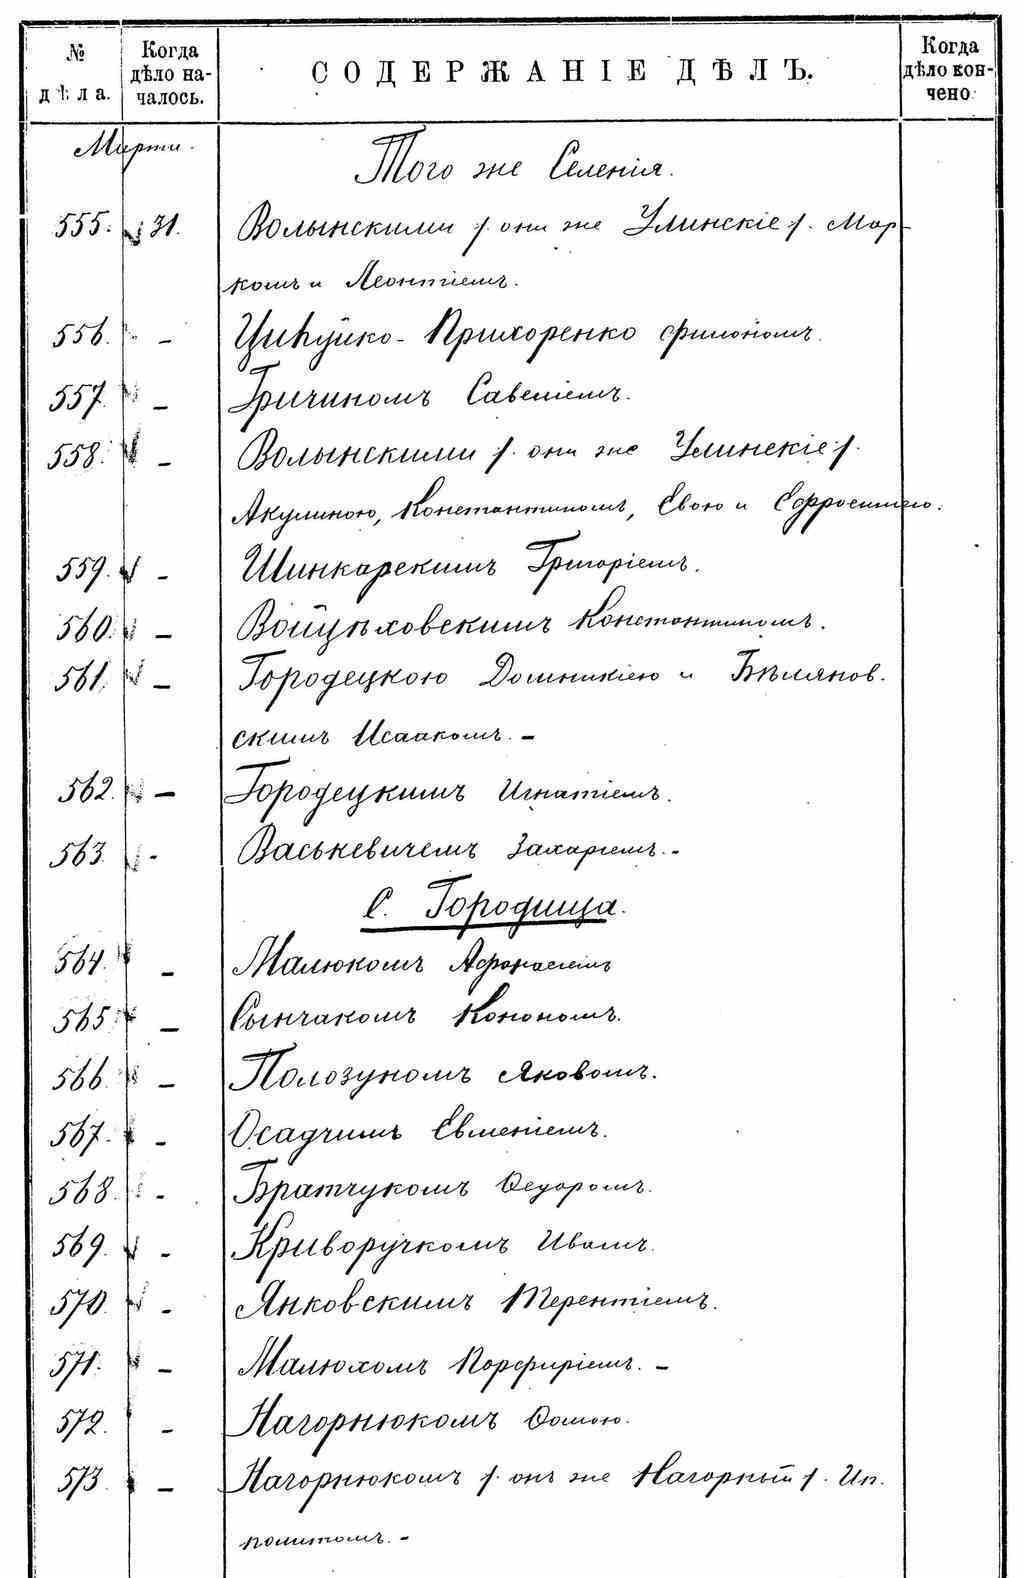 № дѣла.
Когда дѣло на-чалось.
СОДЕРЖАНІЕ ДѢЛЪ.
Когда дѣло кон-чено.
Марта.
Того же Селенія.
555. 31. Волынскими /. они же Улинскіе /. Мар-
комъ и Леонтіемъ.
556. - Прихоренко Филономъ.
557. - Гричиномъ Савеліемъ.
558. - Волынскими /. они же Улинскіе /.
Акулиною, Константиномъ, Евою и Ефросинiею.
559. - Шинкарскимъ Григоріемъ.
560. - Войцѣховскимъ Константиномъ.
561. - Городецкою Домникіею и Бѣлянов.
скимъ Исаакомъ. -
562. - Городецкимъ Игнатіемъ.
563. - Васькевичемъ Захаріемъ. -
С. Городница.
564. - Малюкомъ Афанасіемъ
565. - Сынчакомъ Конономъ.
566. - Полозукомъ Яковомъ.
567. - Осадчимъ Евменіемъ.
568. - Братчукомъ Ѳедоромъ.
569. - Криворучкомъ Иваномъ.
570. - Янковскимъ Терентіемъ.
571. - Малюхомъ Порфиріемъ. -
572. - Нагорнюкомъ Ѳомою.
573. - Нагорнюкомъ /. онъ же Нагорный /. Ип.
политомъ. -